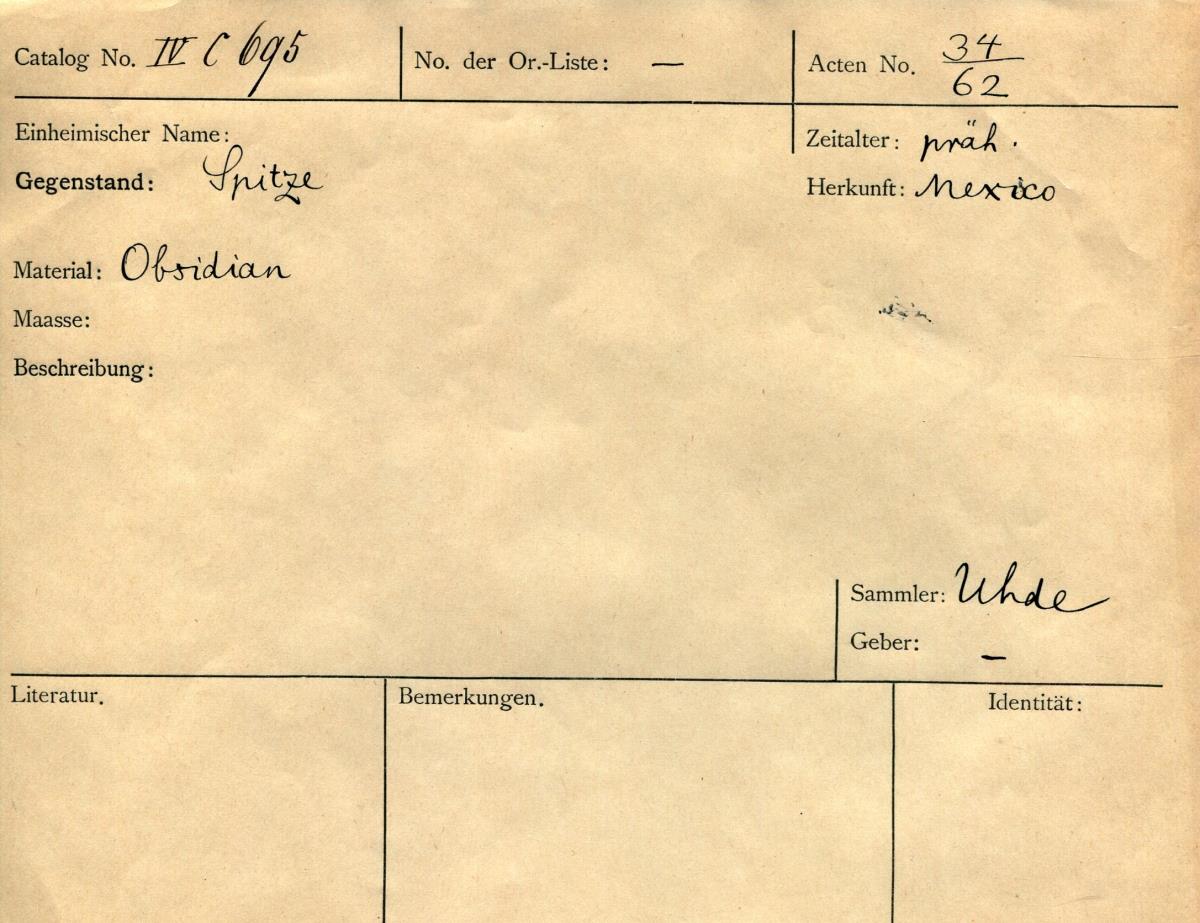 Catalog No. IV C 695
No. der Or.-Liste: —
Acten No. 34/62
Einheimischer Name:
Zeitalter: präh.
Gegenstand: Spitze
Herkunft: Mexico
Material: Obsidian
Maasse:
Beschreibung:
Sammler: Uhde
Geber: —
Literatur.
Bemerkungen.
Identität: